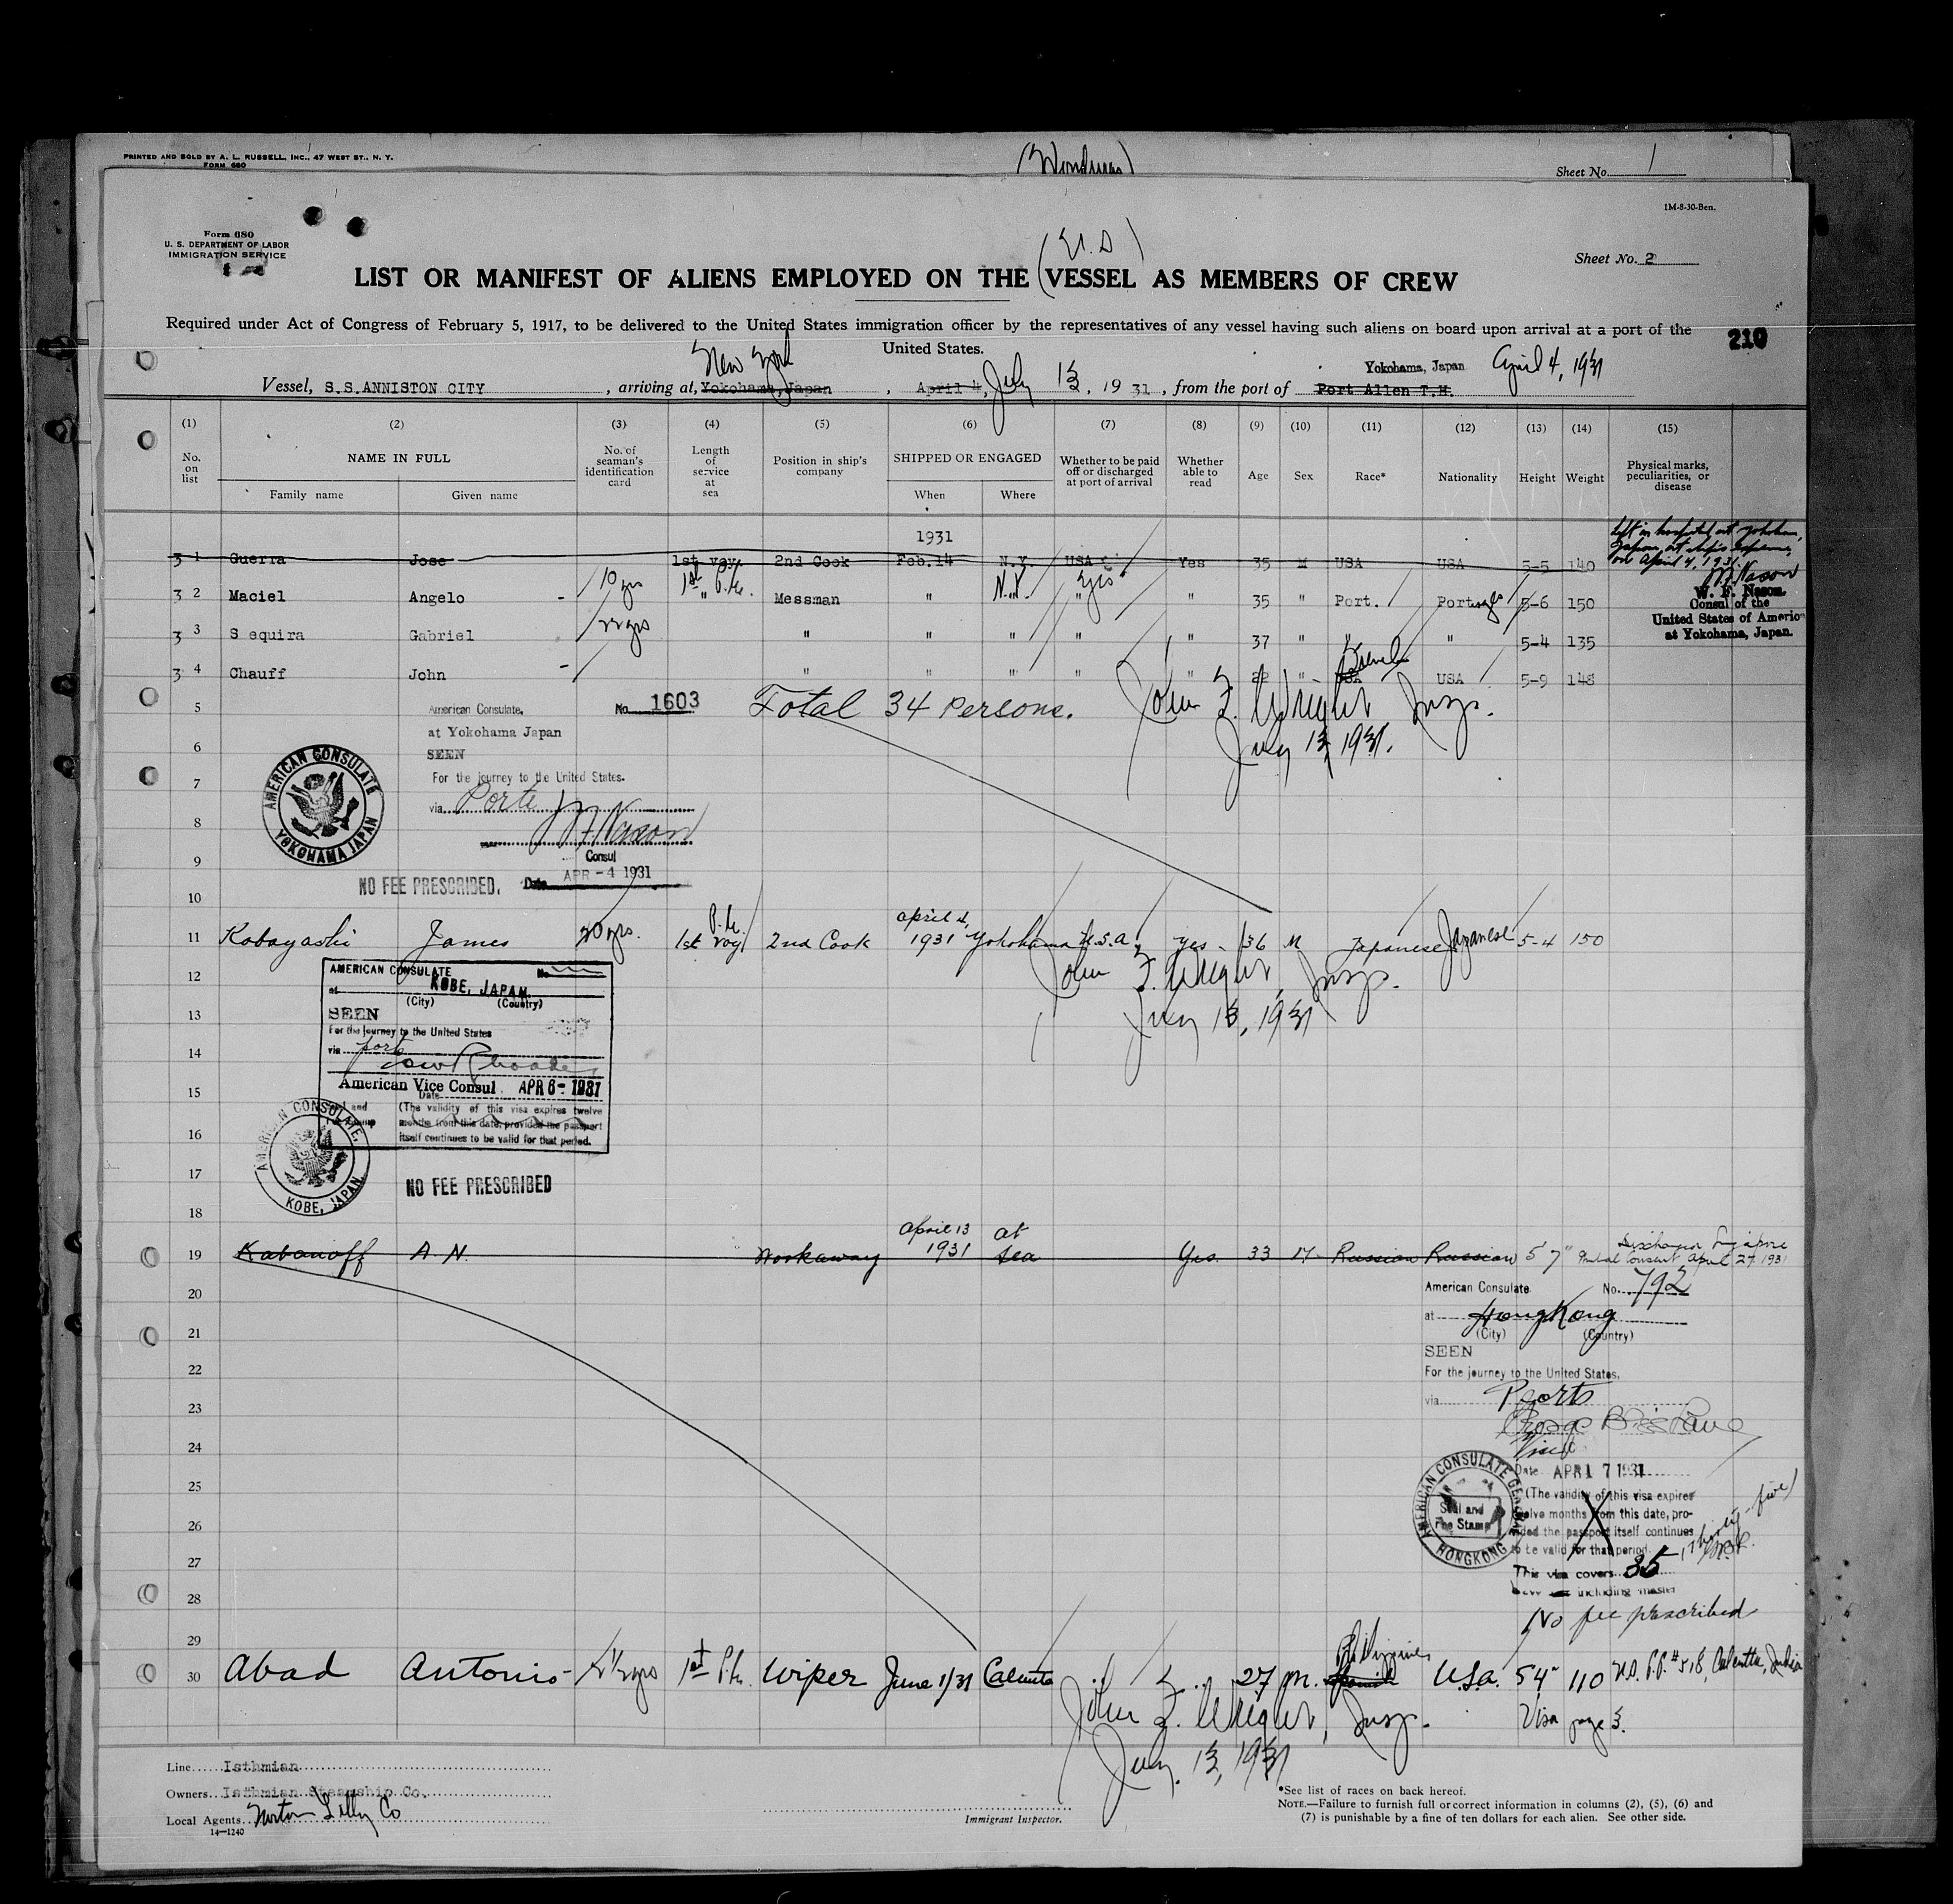 PRINTED AND SOLD BY A. L. RUSSELL, INC., 47 WEST ST., N. Y.
FORM 680
Sheet No. 1
1M-8-30-Ben.
Form 680
U. S. DEPARTMENT OF LABOR
IMMIGRATION SERVICE
(U. S)
Sheet No. 2
LIST OR MANIFEST OF ALIENS EMPLOYED ON THE VESSEL AS MEMBERS OF CREW
Required under Act of Congress of February 5, 1917, to be delivered to the United States immigration officer by the representatives of any vessel having such aliens on board upon arrival at a port of the
United States.
210
New York
Yokohama, Japan April 4, 1931
Vessel, S.S.ANNISTON CITY, arriving at, Yokohama, Japan, April 4, July 13, 19 31, from the port of Port Allen T.H.
(1) (2) (3) (4) (5) (6) (7) (8) (9) (10) (11) (12) (13) (14) (15)
No. on list
NAME IN FULL
Family name
Given name
No. of seaman's identification card
Length of service at sea
Position in ship's company
SHIPPED OR ENGAGED
When
Where
Whether to be paid off or discharged at port of arrival
Whether able to read
Age
Sex
Race*
Nationality
Height
Weight
Physical marks, peculiarities, or disease
1931
3 1 Guerra Jose 1st voy. 2nd Cook Feb.14 N.Y. USA Yes 35 M USA USA 5-5 140
Left in hospital at Yokohama, Japan, at ship's expense on April 4, 1931.
3 2 Maciel Angelo - 10 yrs 1st " Messman " N.Y. " Yes " 35 " Port. Port 5-6 150
W. F. Nason.
Consul of the
United States of America
at Yokohama, Japan.
3 3 S equira Gabriel 22 yrs " " " " " 37 " " " 5-4 135
3 4 Chauff John - " " " " " 22 " USA USA 5-9 148
5
American Consulate.
No. 1603
Total 34 Persons.
John F. Wright Insp.
July 13, 1931.
at Yokohama Japan
6
SEEN
7
For the journey to the United States.
via Ports
8
W F Nason
AMERICAN CONSULATE YOKOHAMA JAPAN
9
Consul
NO FEE PRESCRIBED.
Date APR - 4 1931
10
11 Kobayashi James 20 yrs. 1st voy 2nd Cook April 4, 1931 Yokohama U.S.A. Yes - 36 M Japanese Japanese 5-4 150
John F. Wright, Insp.
July 13, 1931
12
AMERICAN CONSULATE No.
at KOBE, JAPAN.
(City) (Country)
13
SEEN
For the journey to the United States
14
via ports
American Vice Consul
Date APR 6 - 1931
15
(The validity of this visa expires twelve
months from this date, provided the passport
itself continues to be valid for that period.
16
AMERICAN CONSULATE, KOBE, JAPAN
17
NO FEE PRESCRIBED
18
19 Kabanoff A. N. Workaway April 13 1931 at sea Yes. 33 M Russian Russian 5 7" Mutual Consent April 27. 1931
20
American Consulate No. 792
at HongKong
21
(City) (Country)
SEEN
22
For the journey to the United States,
via Ports
23
24
Date APR 1 7 1931
25
(The validity of this visa expires
twelve months from this date, pro-
vided the passport itself continues
to be valid for that period.
AMERICAN CONSULATE GENERAL HONGKONG
Seal and
Fee Stamp
26
27
This visa covers 35 (thirty-five)
crew including master
28
No fee prescribed
29
30 Abad Antonio - 1st Wiper June 1/31 Calcutta 27 M. Philippines Spanish U.S.A. 5 4" 110 U.S. P.P. #518, Calcutta, India
Visa page 3.
John F. Wright, Insp.
July 13, 1931
Line Isthmian
Owners Isthmian Steamship Co.
Local Agents Norton Lilly Co
14-1240
Immigrant Inspector.
*See list of races on back hereof.
NOTE.—Failure to furnish full or correct information in columns (2), (5), (6) and
(7) is punishable by a fine of ten dollars for each alien. See other side.